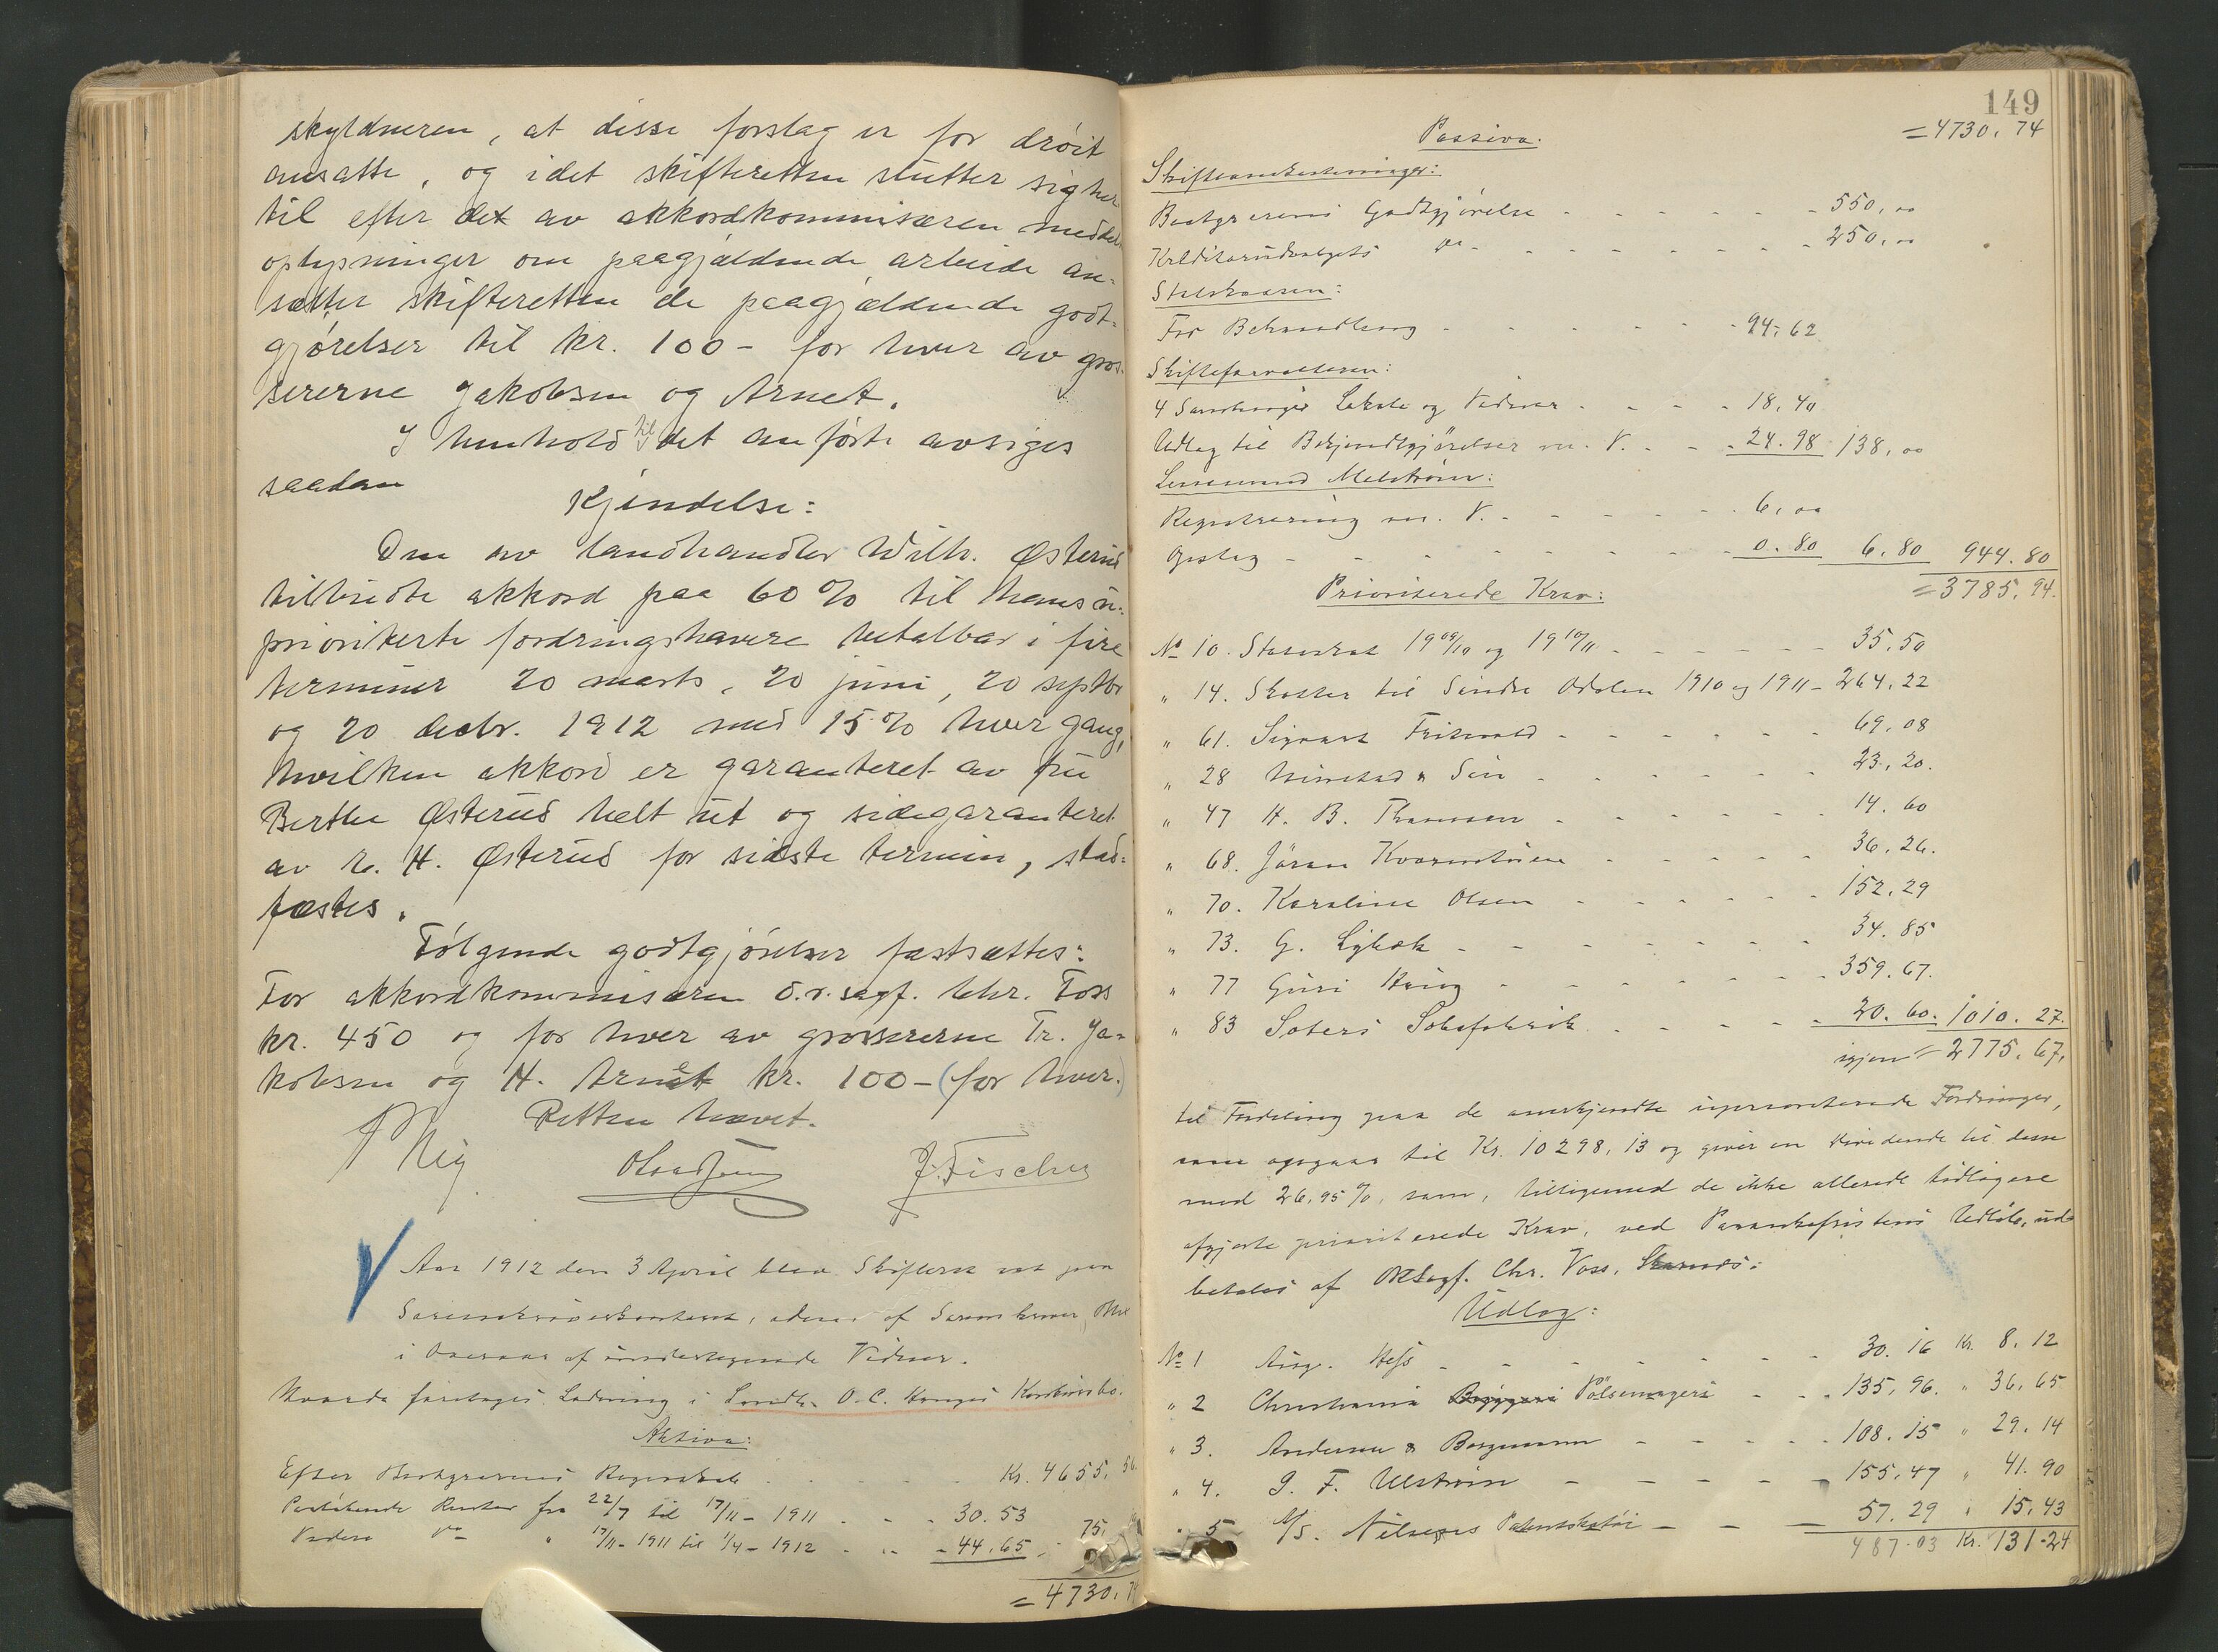 skyldneren, at disse forslag er for drøit
ansatte, og idet skifteretten slutter sig her
til efter det av akkordkommisæren meddel
oplysninger om paagjældende arbeide an-
sætter skifteretten de paagjældende godt-
gjørelser til kr. 100 - for hver av gros-
sererne Jakobsen og Arnet.
I henhold til det anførte avsiges
saadan
Kjendelse:
Den av landhandler Wilh. Østerud
tilbudte akkord paa 60 % til hans u-
prioriterte fordringshavere betalbar i fire
terminer 20 marts, 20 juni, 20 septbr
og 20 decbr. 1912 med 15 % hver gang,
hvilken akkord er garanteret av fru
Berthe Østerud helt ut og sidegaranteret
av H. Østerud for sidste termin, stad-
fæstes.
Følgende godtgjørelser fastsættes:
For akkordkommisæren o.r.sagf. Chr. Foss
kr. 450 og for hver av grossererne Tr. Ja-
kobsen og H. Arnet kr. 100 - (for hver.)
Retten hævet.
J. Fischer
Aar 1912 den 3 April blev Skifteret sat paa
Sorenskriverkontoret, adm. af Sorenskriver
i Overvær af undertegnede Vidner.
Hvorda foretoges Lodning i Landh. O. C. Hauges Konkursbo.
Aktiva:
Efter Bestyrerens Regnskab - - - Kr. 4655,56
Paaløbende Renter fra 22/7 til 17/11 - 1911 - - 30.53
Videre do " 17/11 - 1911 til 1/4 - 1912 - - 44.65 75,
= 4730,74
149
Passiva: = 4730,74
Skifteomkostninger:
Bestyrerens Godtgjørelse - - - 550,00
Kreditorudvalgets do - - - 250,00
Statskassen:
For Behandling - - - 94,62
Skifteforvalteren:
4 Samlinger Lokale og Vidner - - - 18,40
Udlæg til Bekjendtgjørelser m. V. - - 24.98 138,00
Lensmand Melstrøm:
Registrering m. V. - - - 6,00
Opslag - - - 0.80 6,80 944.80
Prioriterede Krav: = 3785,94.
No 10. Statsskat 1909/10 og 1910/11 - - - 35,50
" 14. Skatter til Søndre Odalen 1910 og 1911 - 264,22
" 61. Sigvart - - - 69,08
" 28 & Søn - - - 23,20.
" 47 H. B. - - - 14.60
" 68. Jøran - - - 36,26.
" 70. Karoline Olsen - - - 152,29
" 73. G. - - - 34.85
" 77 Guri - - - 359.67.
" 83 - - - 20.60. 1010.27.
igjen = 2775,67,
til Fordeling paa de anerkjendte uprioriterede Fordringer,
som opgaar til Kr. 10298,13 og giver en Dividende til disse
med 26.95 %, som, tilligemed de ikke allerede tidligere
afgjorte prioriterede Krav, ved Paaankefristens Udløb, ud-
betales af ORSagf. Chr. Voss,
Udlæg:
No 1 Aug. - - - 30.16 Kr. 8,12
" 2 Christiania Pølsemageri - - 135,96. " 36,65
" 3. Andersen & Bergmann - - - 108.15 " 29.14
" 4. J. F. Ulstrøm - - - 155,47 " 41.90
" 5 A/S. - - - 57.29 " 15,43
487.03 Kr. 131-24